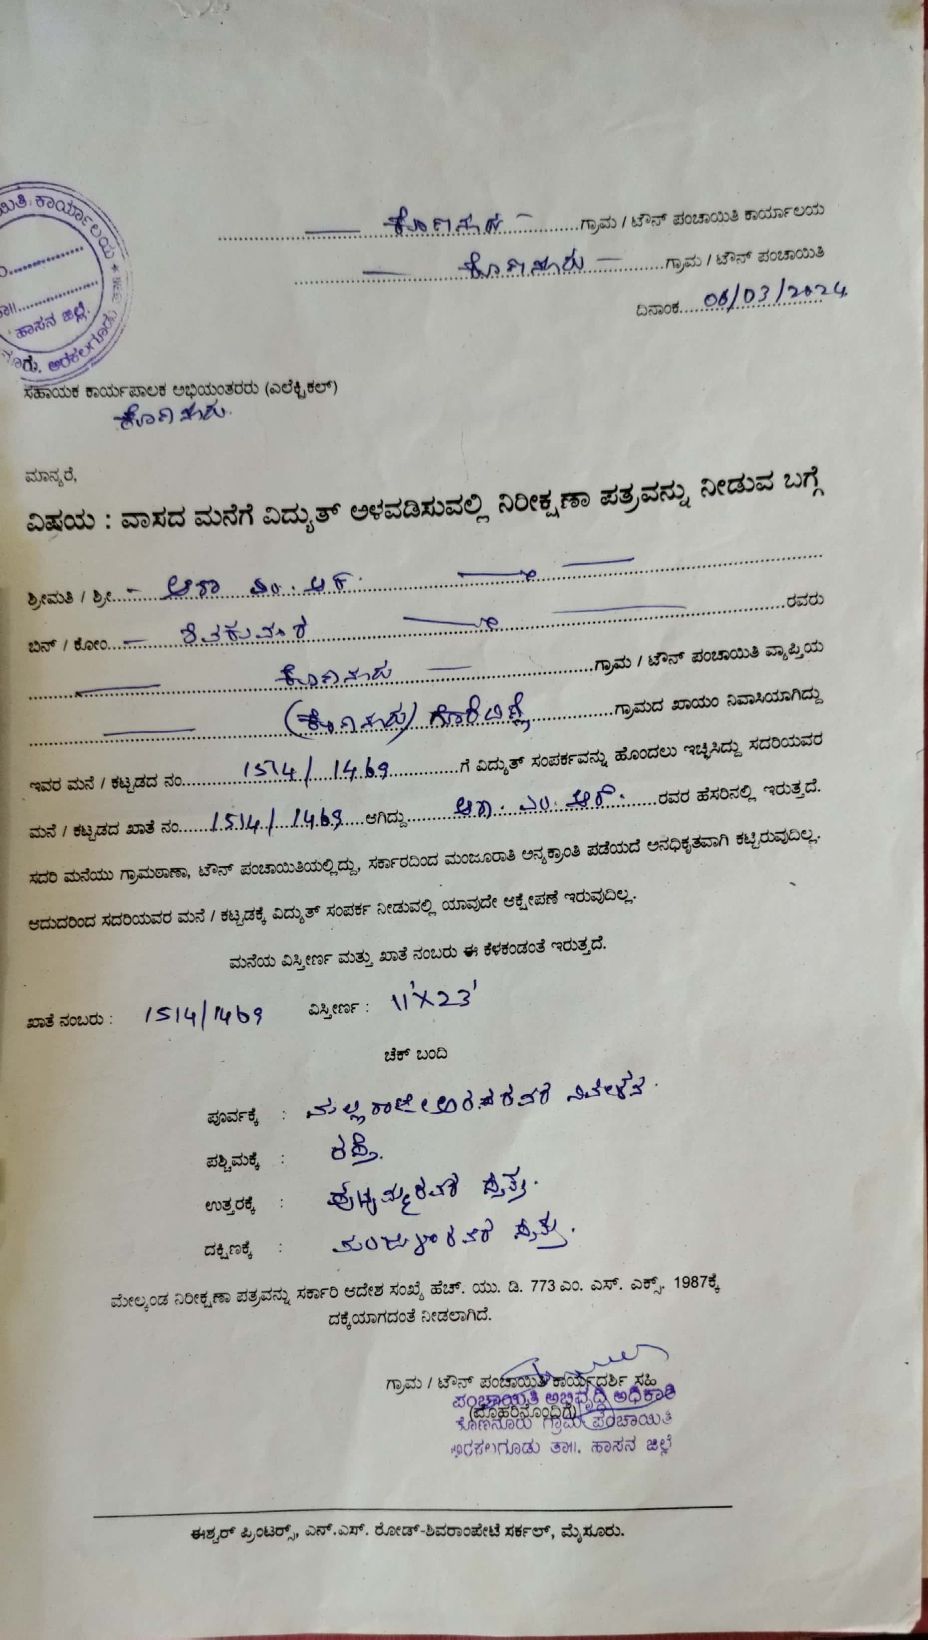 ಕೊಣನೂರು ಗ್ರಾಮ / ಟೌನ್ ಪಂಚಾಯಿತಿ ಕಾರ್ಯಾಲಯ
ಕೊಣನೂರು ಗ್ರಾಮ / ಟೌನ್ ಪಂಚಾಯಿತಿ
ದಿನಾಂಕ 06/03/2024
ಕಾರ್ಯಾಲಯ
ಹಾಸನ ಜಿಲ್ಲೆ.
ಅರಕಲಗೂಡು
ಸಹಾಯಕ ಕಾರ್ಯಪಾಲಕ ಅಭಿಯಂತರರು (ಎಲೆಕ್ಟ್ರಿಕಲ್)
ಕೊಣನೂರು.
ಮಾನ್ಯರೆ,
ವಿಷಯ : ವಾಸದ ಮನೆಗೆ ವಿದ್ಯುತ್ ಅಳವಡಿಸುವಲ್ಲಿ ನಿರೀಕ್ಷಣಾ ಪತ್ರವನ್ನು ನೀಡುವ ಬಗ್ಗೆ
ಶ್ರೀಮತಿ / ಶ್ರೀ ಆಶಾ ಎಂ. ಆರ್.
ಬಿನ್ / ಕೋಂ ಶಿವಕುಮಾರ ರವರು
ಕೊಣನೂರು ಗ್ರಾಮ / ಟೌನ್ ಪಂಚಾಯಿತಿ ವ್ಯಾಪ್ತಿಯ
(ಕೊಣನೂರು) ಗ್ರಾಮದ ಖಾಯಂ ನಿವಾಸಿಯಾಗಿದ್ದು
ಇವರ ಮನೆ / ಕಟ್ಟಡದ ನಂ. 1514/1469 ಗೆ ವಿದ್ಯುತ್ ಸಂಪರ್ಕವನ್ನು ಹೊಂದಲು ಇಚ್ಛಿಸಿದ್ದು ಸದರಿಯವರ
ಮನೆ / ಕಟ್ಟಡದ ಖಾತೆ ನಂ. 1514/1469 ಆಗಿದ್ದು ಆಶಾ. ಎಂ. ಆರ್. ರವರ ಹೆಸರಿನಲ್ಲಿ ಇರುತ್ತದೆ.
ಸದರಿ ಮನೆಯು ಗ್ರಾಮಠಾಣಾ, ಟೌನ್ ಪಂಚಾಯಿತಿಯಲ್ಲಿದ್ದು, ಸರ್ಕಾರದಿಂದ ಮಂಜೂರಾತಿ ಅನ್ಯಕ್ರಾಂತಿ ಪಡೆಯದೆ ಅನಧಿಕೃತವಾಗಿ ಕಟ್ಟಿರುವುದಿಲ್ಲ.
ಆದುದರಿಂದ ಸದರಿಯವರ ಮನೆ / ಕಟ್ಟಡಕ್ಕೆ ವಿದ್ಯುತ್ ಸಂಪರ್ಕ ನೀಡುವಲ್ಲಿ ಯಾವುದೇ ಆಕ್ಷೇಪಣೆ ಇರುವುದಿಲ್ಲ.
ಮನೆಯ ವಿಸ್ತೀರ್ಣ ಮತ್ತು ಖಾತೆ ನಂಬರು ಈ ಕೆಳಕಂಡಂತೆ ಇರುತ್ತದೆ.
ಖಾತೆ ನಂಬರು : 1514/1469 ವಿಸ್ತೀರ್ಣ : 11'X23'
ಚೆಕ್ ಬಂದಿ
ಪೂರ್ವಕ್ಕೆ : ನಿವೇಶನ.
ಪಶ್ಚಿಮಕ್ಕೆ : ರಸ್ತೆ.
ಉತ್ತರಕ್ಕೆ : ಪುಟ್ಟಮ್ಮರವರ ಸ್ವತ್ತು.
ದಕ್ಷಿಣಕ್ಕೆ : ಮಂಜುಳಾರವರ ಸ್ವತ್ತು.
ಮೇಲ್ಕಂಡ ನಿರೀಕ್ಷಣಾ ಪತ್ರವನ್ನು ಸರ್ಕಾರಿ ಆದೇಶ ಸಂಖ್ಯೆ ಹೆಚ್. ಯು. ಡಿ. 773 ಎಂ. ಎಸ್. ಎಕ್ಸ್. 1987ಕ್ಕೆ
ದಕ್ಕೆಯಾಗದಂತೆ ನೀಡಲಾಗಿದೆ.
ಗ್ರಾಮ / ಟೌನ್ ಪಂಚಾಯಿತಿ ಕಾರ್ಯದರ್ಶಿ ಸಹಿ
ಪಂಚಾಯಿತಿ ಅಭಿವೃದ್ಧಿ ಅಧಿಕಾರಿ
(ಮೊಹರಿನೊಂದಿಗೆ)
ಕೊಣನೂರು ಗ್ರಾಮ ಪಂಚಾಯಿತಿ
ಅರಕಲಗೂಡು ತಾ॥. ಹಾಸನ ಜಿಲ್ಲೆ
ಈಶ್ವರ್ ಪ್ರಿಂಟರ್ಸ್, ಎನ್.ಎಸ್. ರೋಡ್-ಶಿವರಾಂಪೇಟೆ ಸರ್ಕಲ್, ಮೈಸೂರು.